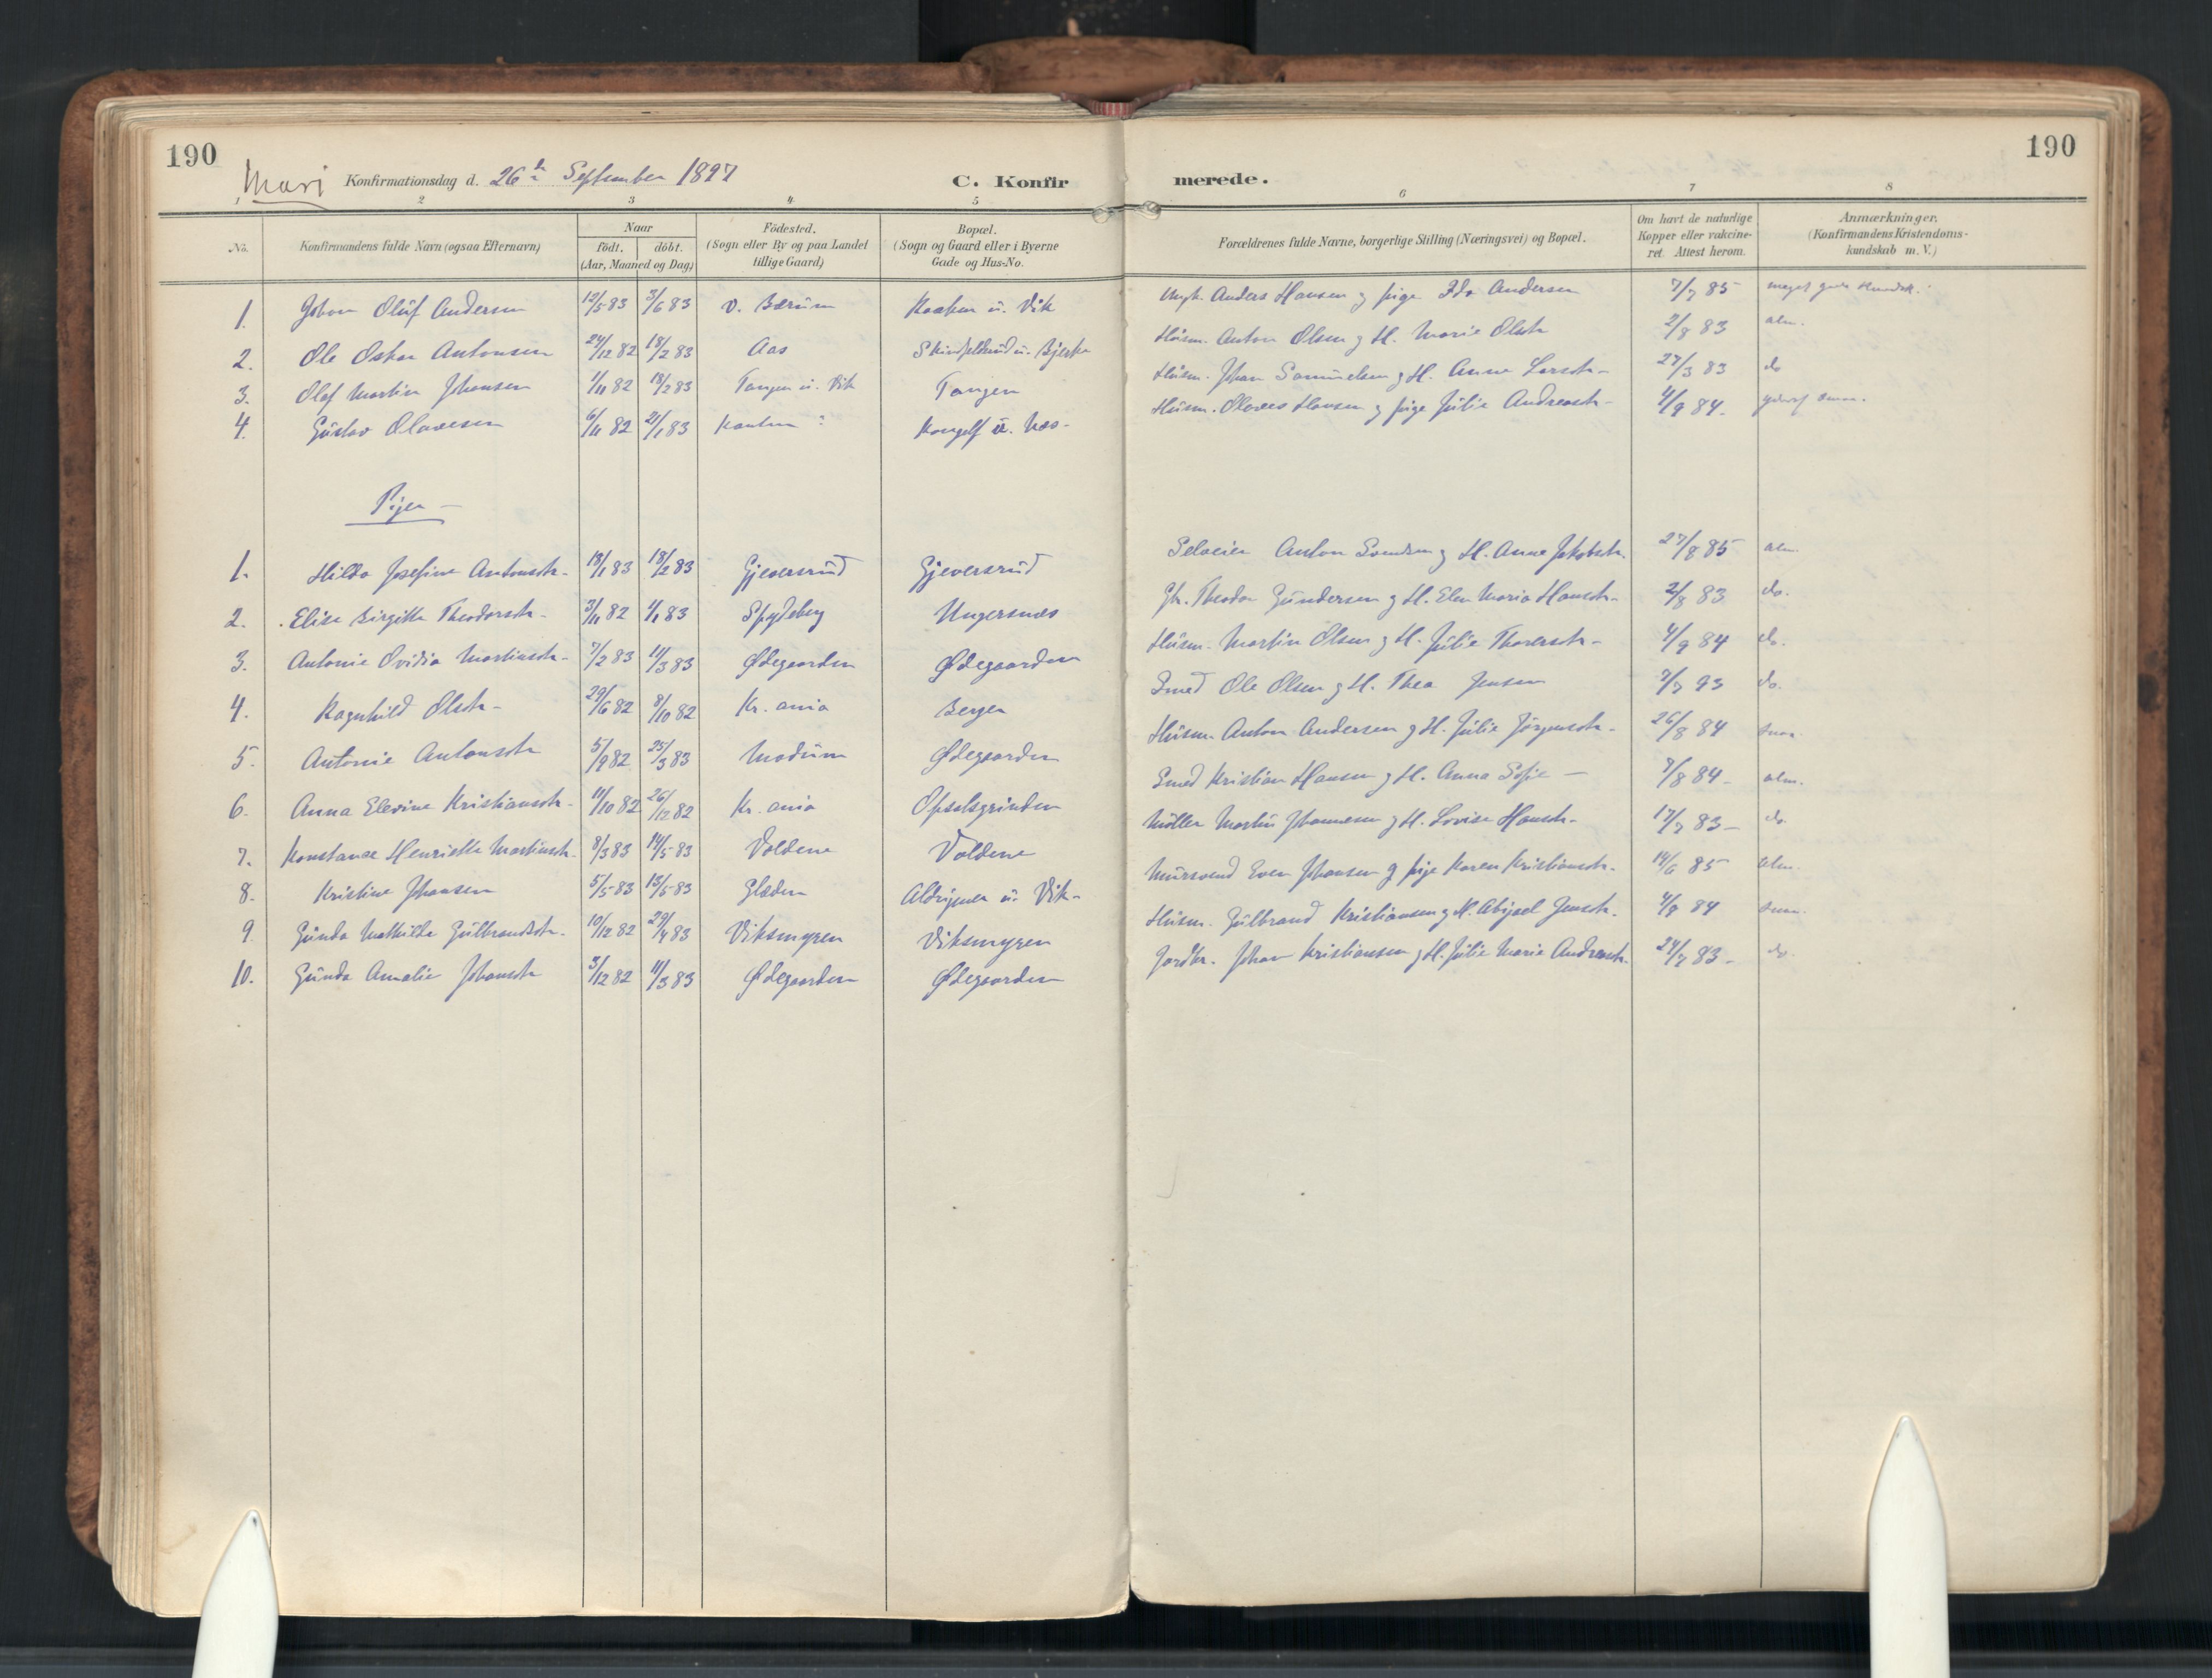 190
190
Mari Konfirmationsdag d. 26de September 1897 C. Konfirmerede.
1 2 3 4 5 6 7 8
No. Konfirmandens fulde Navn (ogsaa Efternavn) Naar födt. döbt. (Aar, Maaned og Dag) Födested. (Sogn eller By og paa Landet tillige Gaard) Bopæl. (Sogn og Gaard eller i Byerne Gade og Hus-No. Forældrenes fulde Navne, borgerlige Stilling (Næringsvei) og Bopæl. Om havt de naturlige Kopper eller vakcineret. Attest herom. Anmærkninger. (Konfirmandens Kristendomskundskab m. V.)
1. Johan Oluf Andersen 12/5 83 3/6 83 V. Bærum u. Vik Ungk. Anders Hansen g pige Ida Andersen 7/7 85 meget gode
2. Ole Oskar Antonsen 24/12 82 18/2 83 Aas u. Bjerke Husm. Anton Olsen g H. Marie Olsdtr 2/8 83 alm.
3. Olaf Martin Johansen 1/11 82 18/2 83 Tangen u. Vik Tangen Husm. Johan Samuelsen g H. Anne Larsdtr- 27/3 83 do
4. Gustav Olavesen 6/11 82 21/1 83 u. Næs- Husm. Olaves Hansen g pige Julie Andreasdtr- 4/9 84-
Piger -
1. Hilda Josefine Antonsdtr- 18/1 83 18/2 83 Gjeversrud Gjeversrud Seleier Anton Svendsen g H. Anne Jakobsdtr. 27/8 85 alm.
2. Elise Birgitte Theodorsdtr- 3/11 82 1/1 83 Spydeberg Ungersnæs Theodor Gundersen g H. Elen Maria Hansdtr- 2/8 83 do.
3. Antonie Ovidia Martinsdtr- 7/2 83 11/3 83 Ødegaarden Ødegaarden Husm. Martin Olsen g H. Julie Thoresdtr- 4/9 84 do.
4. Ragnhild Olsdtr- 29/6 82 8/10 82 Kr. ania Berger Smed Ole Olsen g H. Thea Jensen 7/7 93 do.
5. Antonie Antonsdtr 5/9 82 25/3 83 Modum Ødegaarden Husm. Anton Andersen g H. Julie Jörgensdtr- 26/8 84
6. Anna Elevine Kristiansdtr- 11/10 82 26/12 82 Kr. ania Opsalsgrinden Smed Kristian Hansen g H. Anna Sofie - 7/8 84- alm.
7. Konstance Henriette Martinsdtr. 8/3 83 14/5 83 Voldene Voldene Möller Martin Johannesen g H. Lovise Hansdtr- 17/7 83- do.
8. Kristine Johansen 5/5 83 13/5 83 Gladen u. Vik- Mursvend Even Johansen g pige Karen Kristiansdtr. 14/6 85 alm.
9. Gunda Mathilde Gulbrandsdtr- 10/12 82 29/4 83 Viksmyren Viksmyren Husm. Gulbrand Kristiansen g H. Abigael Jensdtr. 4/9 84
10. Gunda Amalie Johansdtr 3/12 82 11/3 83 Ødegaarden Ødegaarden Jordbr. Johan Kristiansen g H. Julie Marie Andreasdtr. 24/7 83- do.